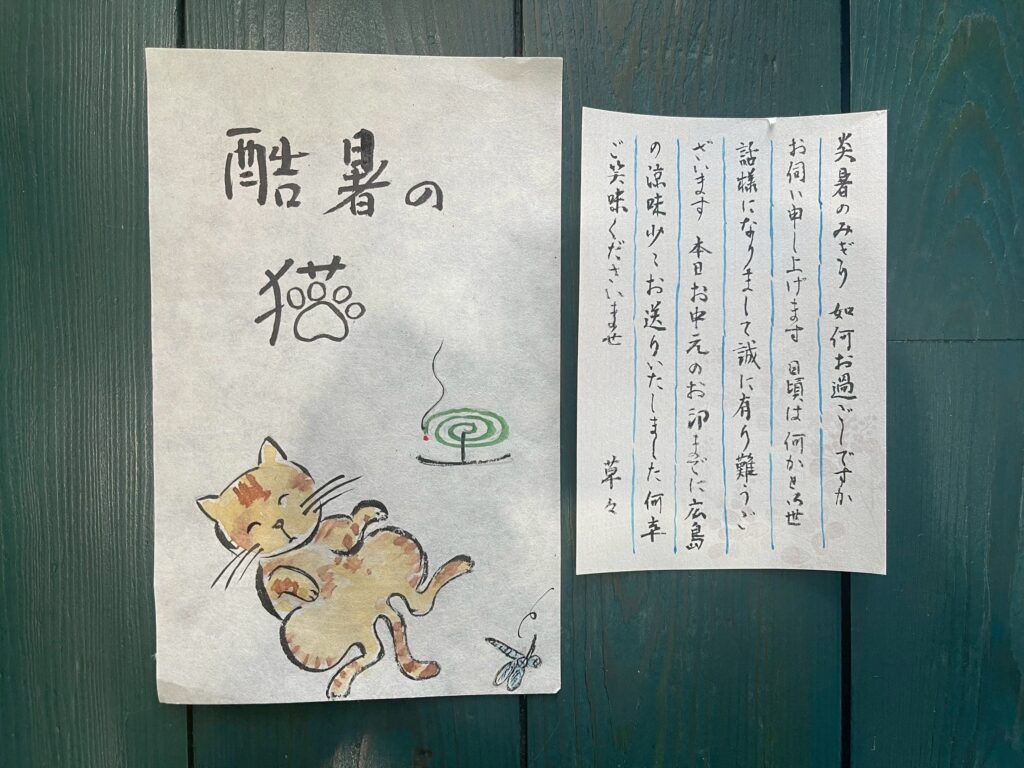 酷暑の
猫
炎暑のみぎり 如何お過ごしですか
お伺い申し上げます 日頃は何かと御世
話様になりまして誠に有り難うご
ざいます 本日お中元のお印までに広島
の涼味少々お送りいたしました何卒
ご笑味くださいませ 草々